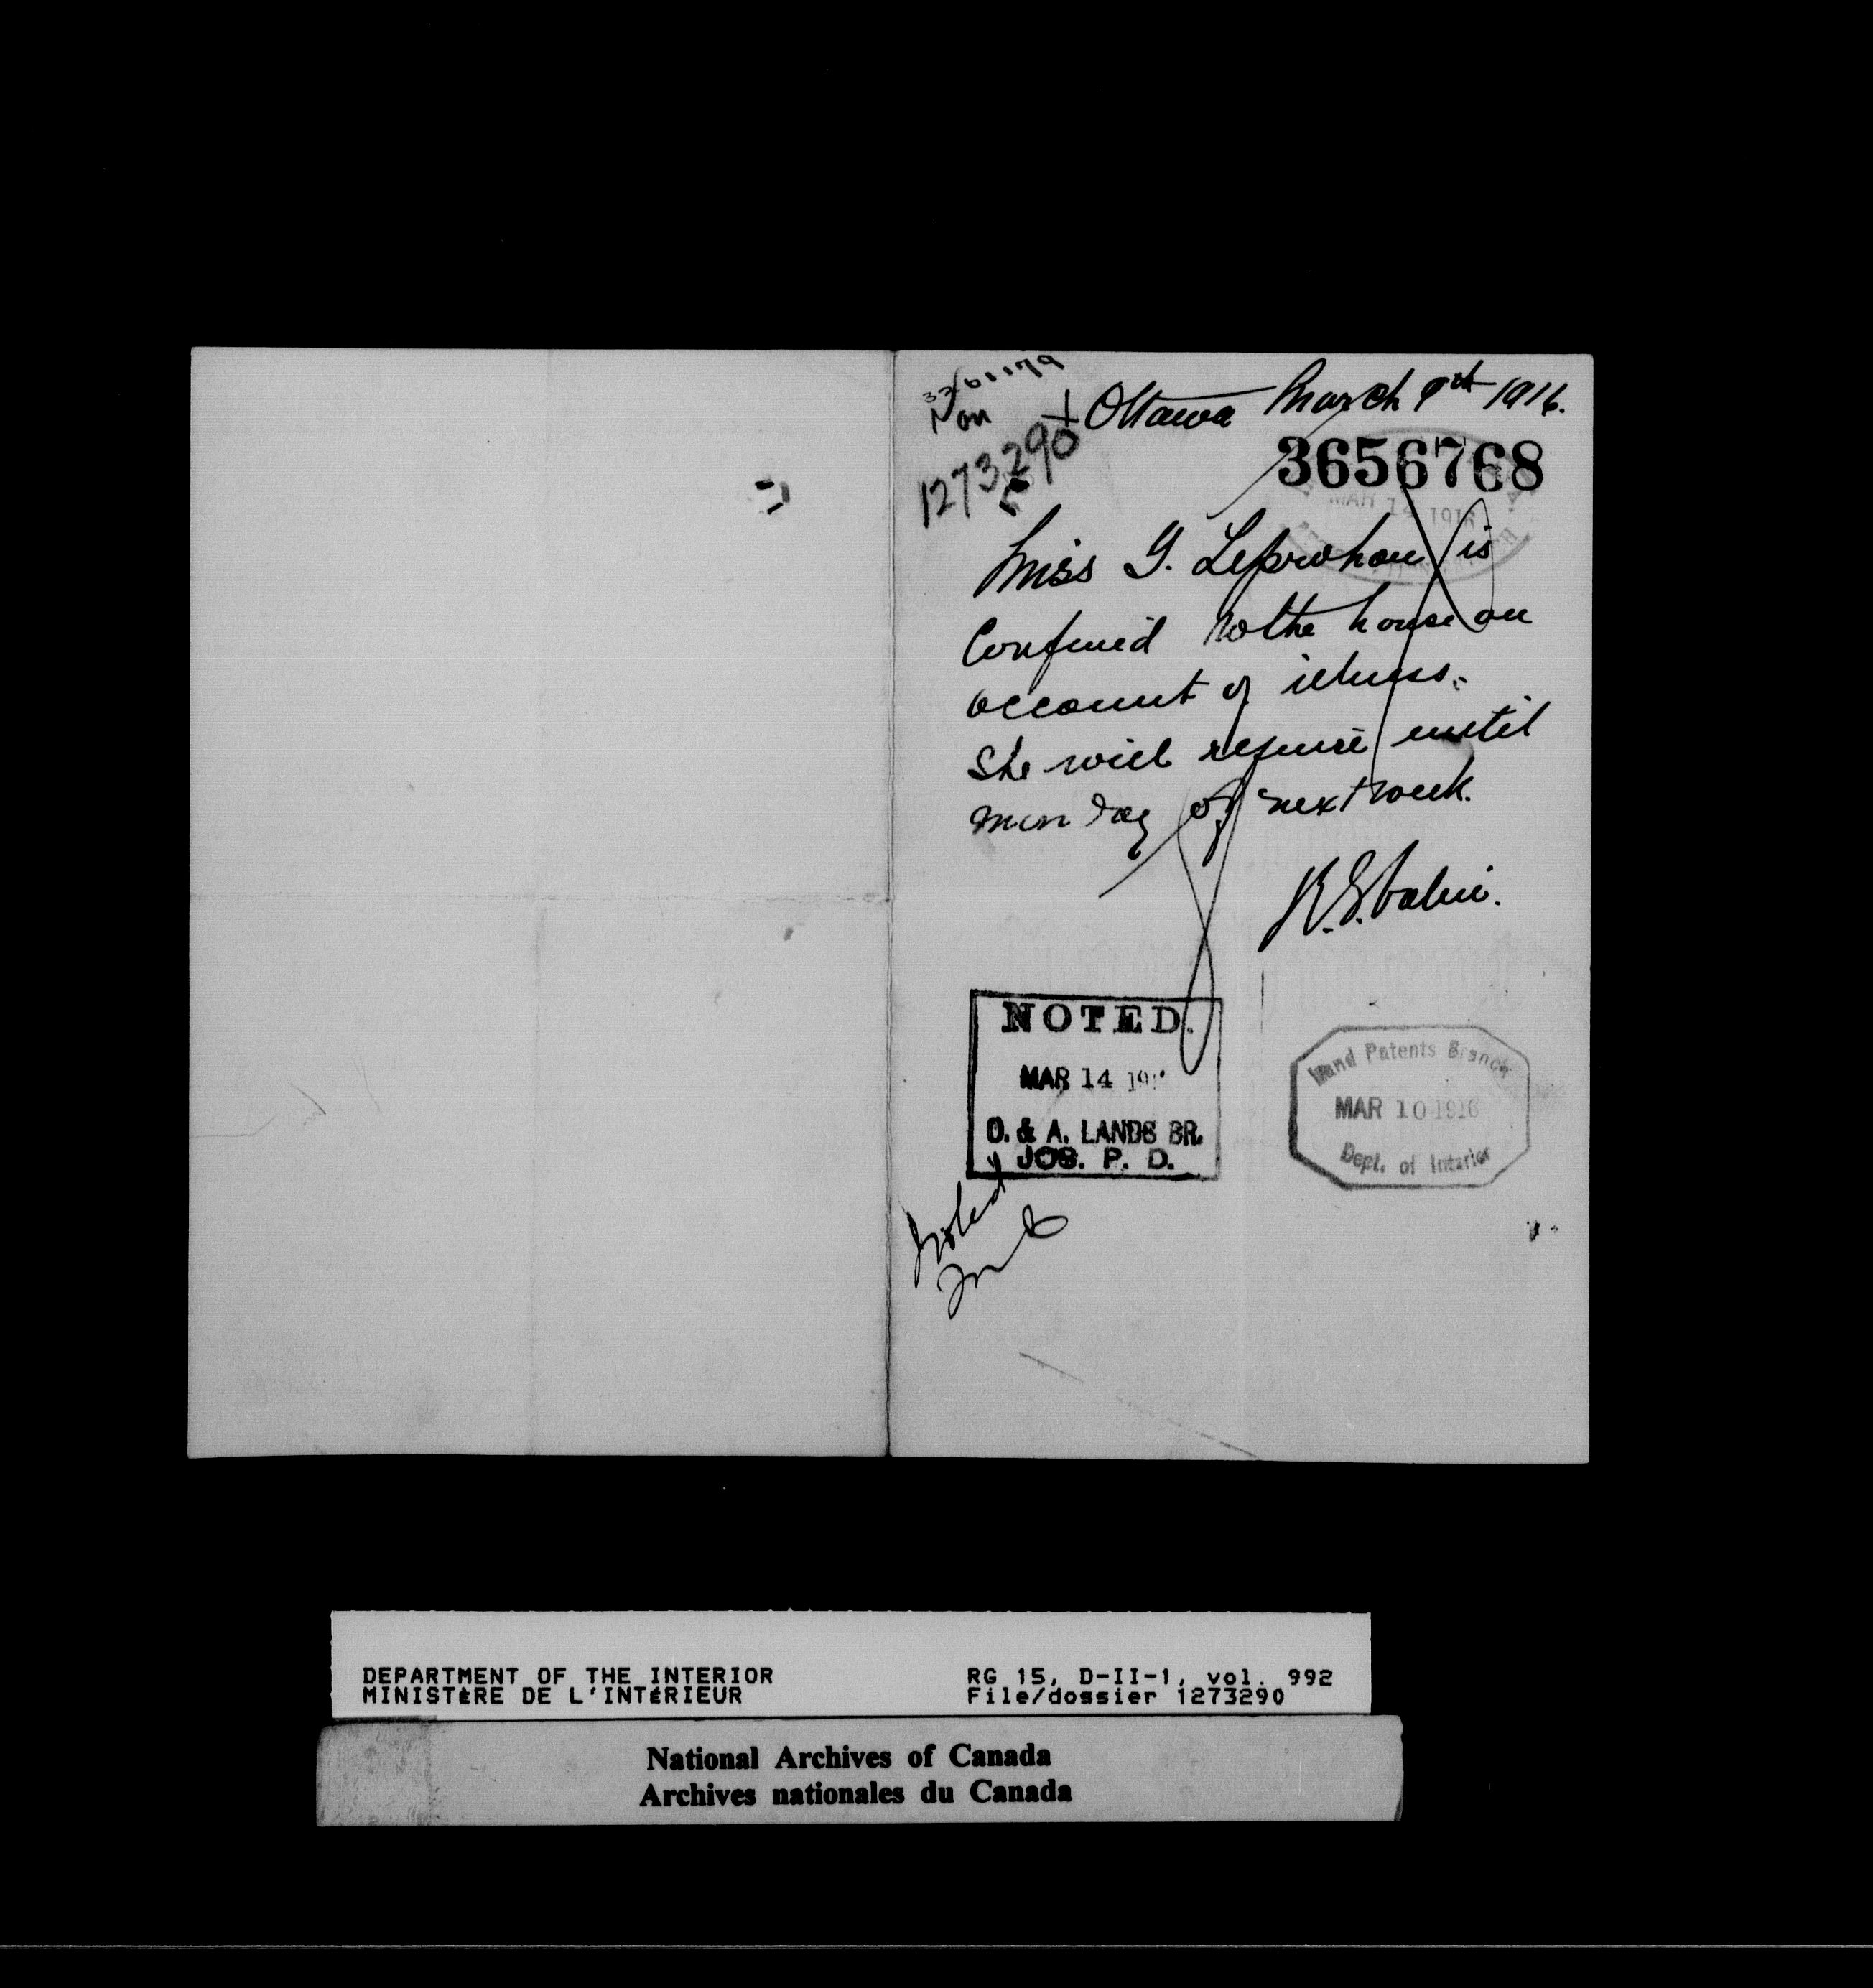 3261179
Non
1273290
Ottawa March 9th 1916.
3656768
MAR 14 1916
Miss G. Leprohon is
Confined to the house on
account of illness.
She will require until
monday of next week.
NOTED.
MAR 14 191
O. & A. LANDS BR.
JOS. P. D.
Land Patents Branch
MAR 10 1916
Dept. of Interior
Noted
DEPARTMENT OF THE INTERIOR
MINISTÈRE DE L'INTÉRIEUR
RG 15, D-II-1, vol. 992
File/dossier 1273290
National Archives of Canada
Archives nationales du Canada